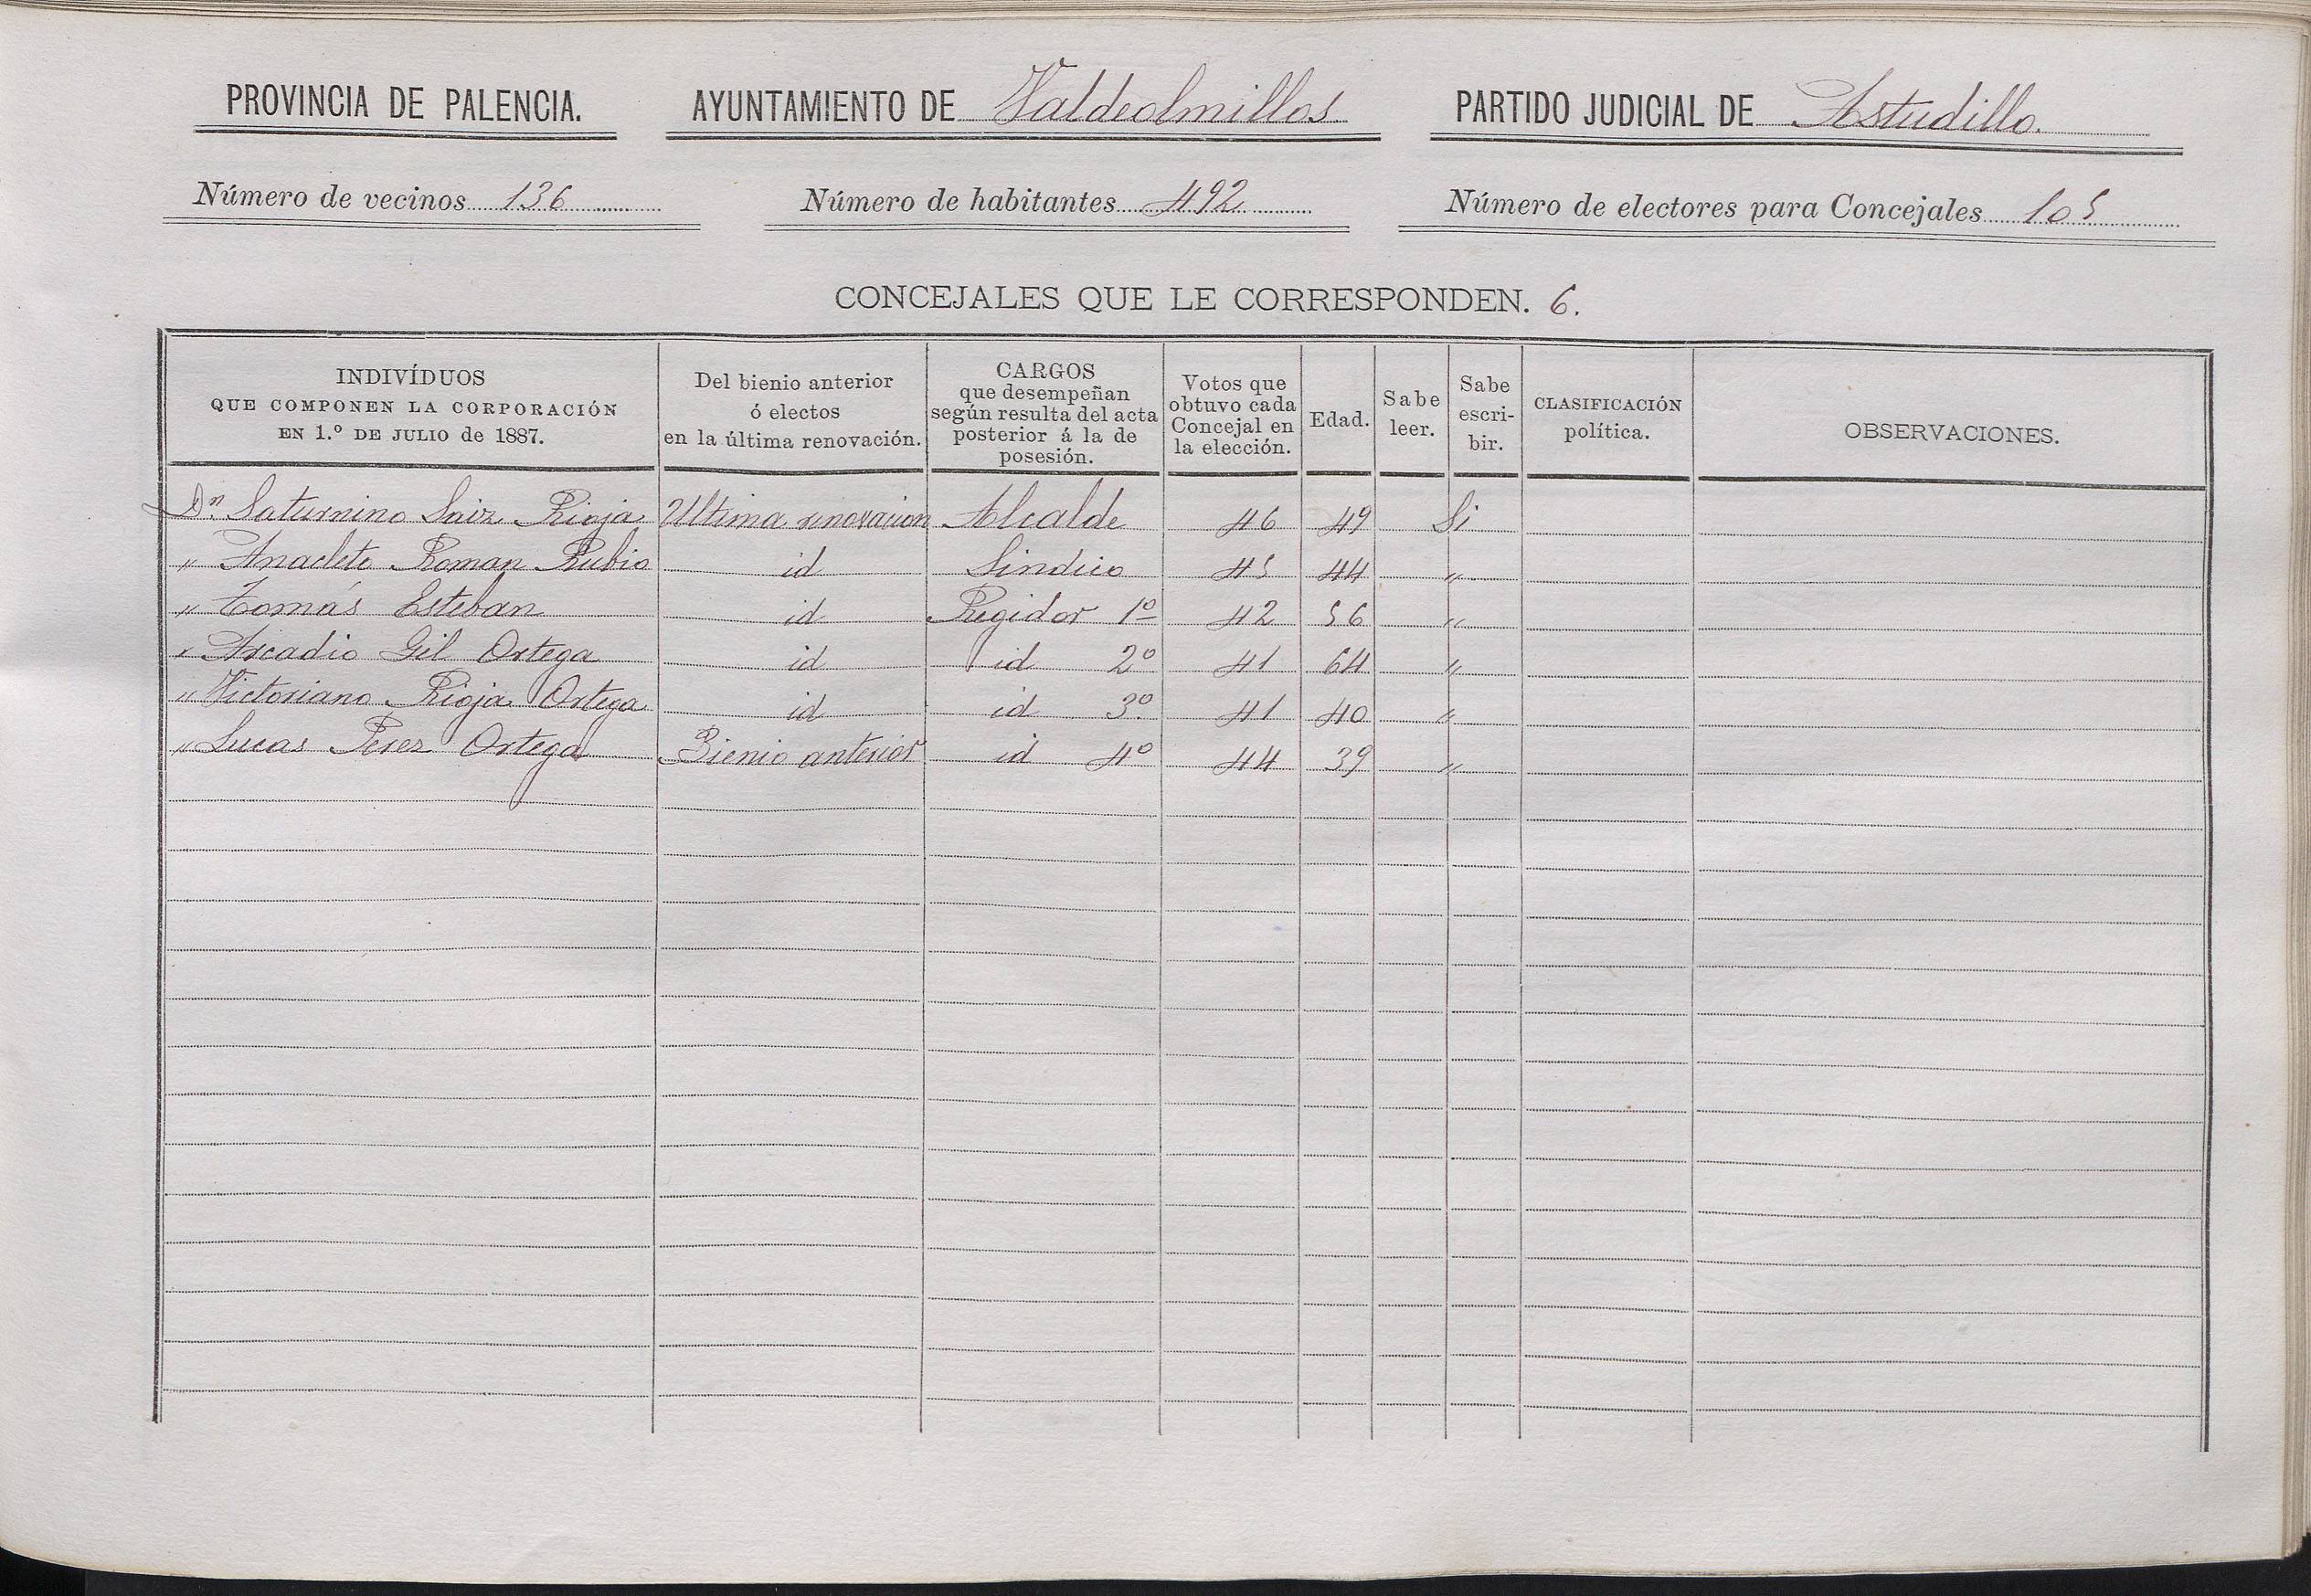 PROVINCIA DE PALENCIA. AYUNTAMIENTO DE Valdeolmillos. PARTIDO JUDICIAL DE Astudillo.
Número de vecinos 136 Número de habitantes 492 Número de electores para Concejales 105
CONCEJALES QUE LE CORRESPONDEN. 6.
INDIVÍDUOS
QUE COMPONEN LA CORPORACIÓN
EN 1.º DE JULIO de 1887.
Del bienio anterior
ó electos
en la última renovación.
CARGOS
que desempeñan
según resulta del acta
posterior á la de
posesión.
Votos que
obtuvo cada
Concejal en
la elección.
Edad.
Sabe
leer.
Sabe
escri-
bir.
CLASIFICACIÓN
política.
OBSERVACIONES.
Dn. Saturnino Saiz Rioja Ultima renovacion Alcalde 46 49 Si
" Anacleto Roman Rubio id Sindico 45 44 "
" Tomás Esteban id Regidor 1º 42 56 "
" Arcadio Gil Ortega id id 2º 41 64 "
" Victoriano Rioja Ortega id id 3º 41 40 "
" Lucas Perez Ortega Bienio anterior id 4º 44 39 "